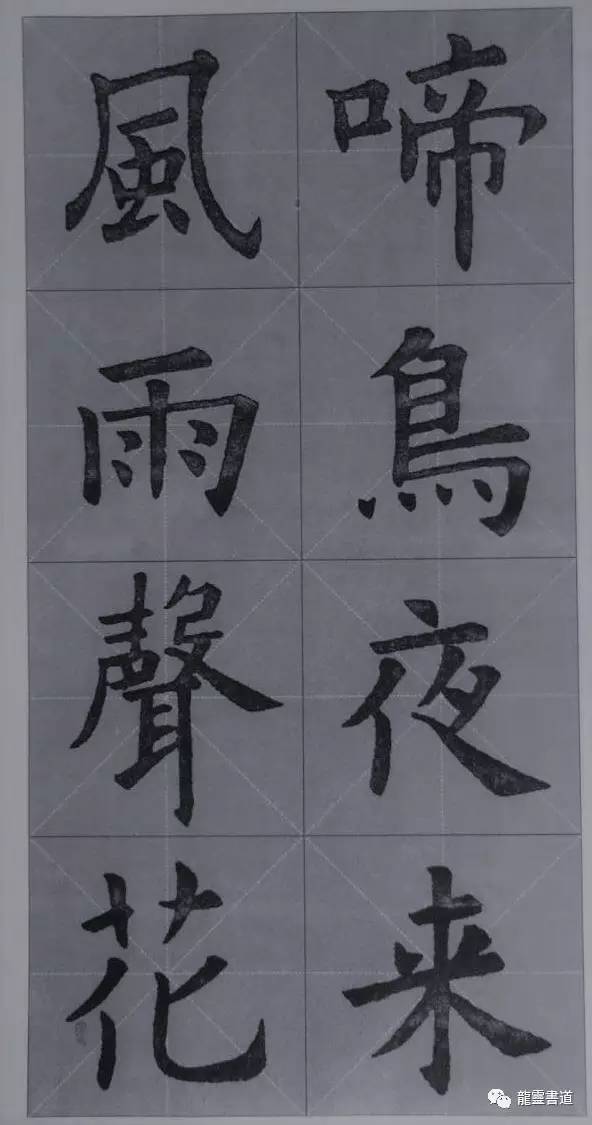 啼鳥夜来
風雨聲花
龍靈書道